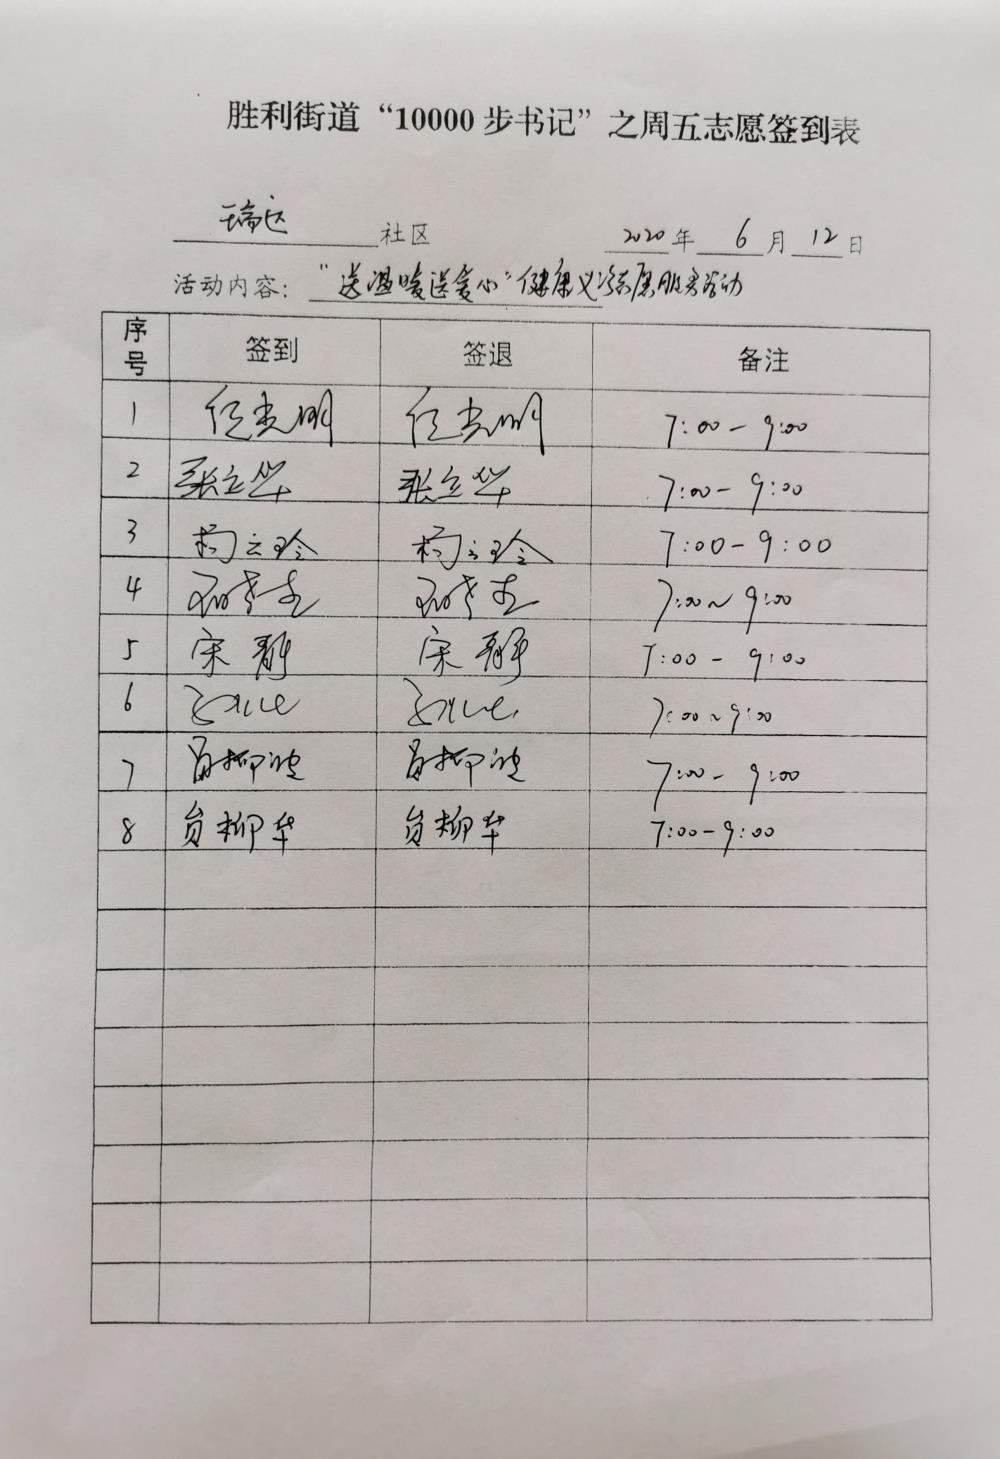 胜利街道“10000步书记”之周五志愿签到表
瑞达 社区 2020年 6月 12日
活动内容: “送温暖送爱心”健康义诊志愿服务活动
序号 签到 签退 备注
1 任光明 任光明 7:00-9:00
2 张立华 张立华 7:00-9:00
3 杨云玲 杨云玲 7:00-9:00
4 7:00~9:00
5 宋静 宋静 7:00-9:00
6 7:00~9:00
7 7:00-9:00
8 贠柳华 贠柳华 7:00-9:00